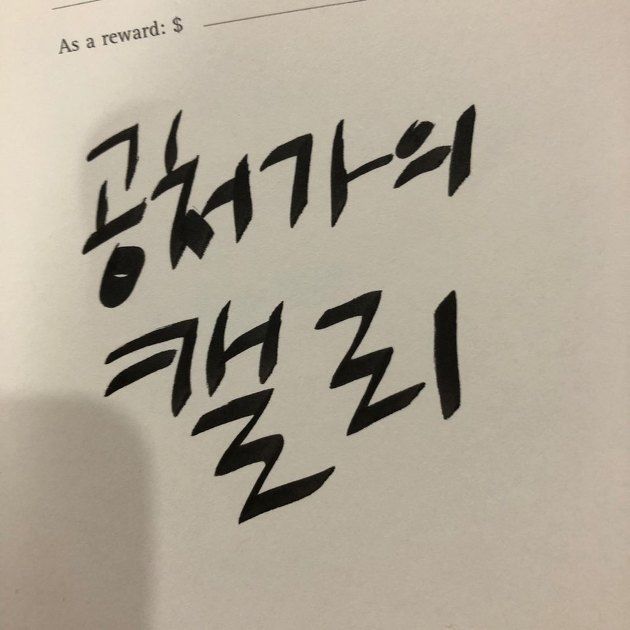 As a reward: $
공처가의
캘리